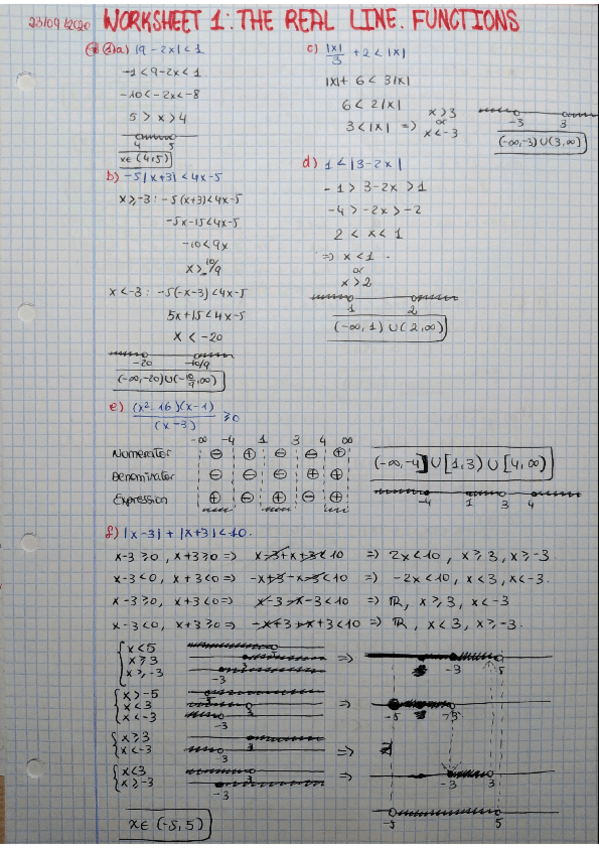 23/09/2020 WORKSHEET 1: THE REAL LINE. FUNCTIONS
a) |9-2x| < 1
-1 < 9-2x < 1
-10 < -2x < -8
5 > x > 4
4 5
x∈(4,5)
b) -5|x+3| < 4x-5
x ≥ -3: -5(x+3) < 4x-5
-5x-15 < 4x-5
-10 < 9x
x > -10/9
x < -3: -5(-x-3) < 4x-5
5x+15 < 4x-5
x < -20
-20 -10/9
(-∞,-20)∪(-10/9,∞)
c) |x|/3 + 2 < |x|
|x| + 6 < 3|x|
6 < 2|x|
3 < |x| => x > 3 or x < -3
-3 3
(-∞,-3)∪(3,∞)
d) 1 < |3-2x|
-1 > 3-2x > 1
-4 > -2x > -2
2 < x < 1
=> x < 1
or
x > 2
1 2
(-∞,1)∪(2,∞)
e) (x²-16)(x-1)/(x-3) ≥ 0
-∞ -4 1 3 4 ∞
Numerator ⊖ ⊕ ⊖ ⊖ ⊕
Denominator ⊖ ⊖ ⊖ ⊕ ⊕
Expression ⊕ ⊖ ⊕ ⊖ ⊕
(-∞,-4]∪[1,3)∪[4,∞)
-4 1 3 4
f) |x-3| + |x+3| < 10.
x-3 ≥ 0, x+3 ≥ 0 => x-3+x+3 < 10 => 2x < 10, x ≥ 3, x ≥ -3.
x-3 < 0, x+3 < 0 => -x+3-x-3 < 10 => -2x < 10, x < 3, x < -3.
x-3 ≥ 0, x+3 < 0 => x-3-x-3 < 10 => ℝ, x ≥ 3, x < -3
x-3 < 0, x+3 ≥ 0 => -x+3+x+3 < 10 => ℝ, x < 3, x ≥ -3.
x < 5
x ≥ 3
x ≥ -3
-3
=>
-3 5
x > -5
x < 3
x < -3
-3
=>
-5 -3
x ≥ 3
x < -3
3
-3
=>
x < 3
x ≥ -3
3
-3
=>
-3 3
-5 5
x∈(-5,5)